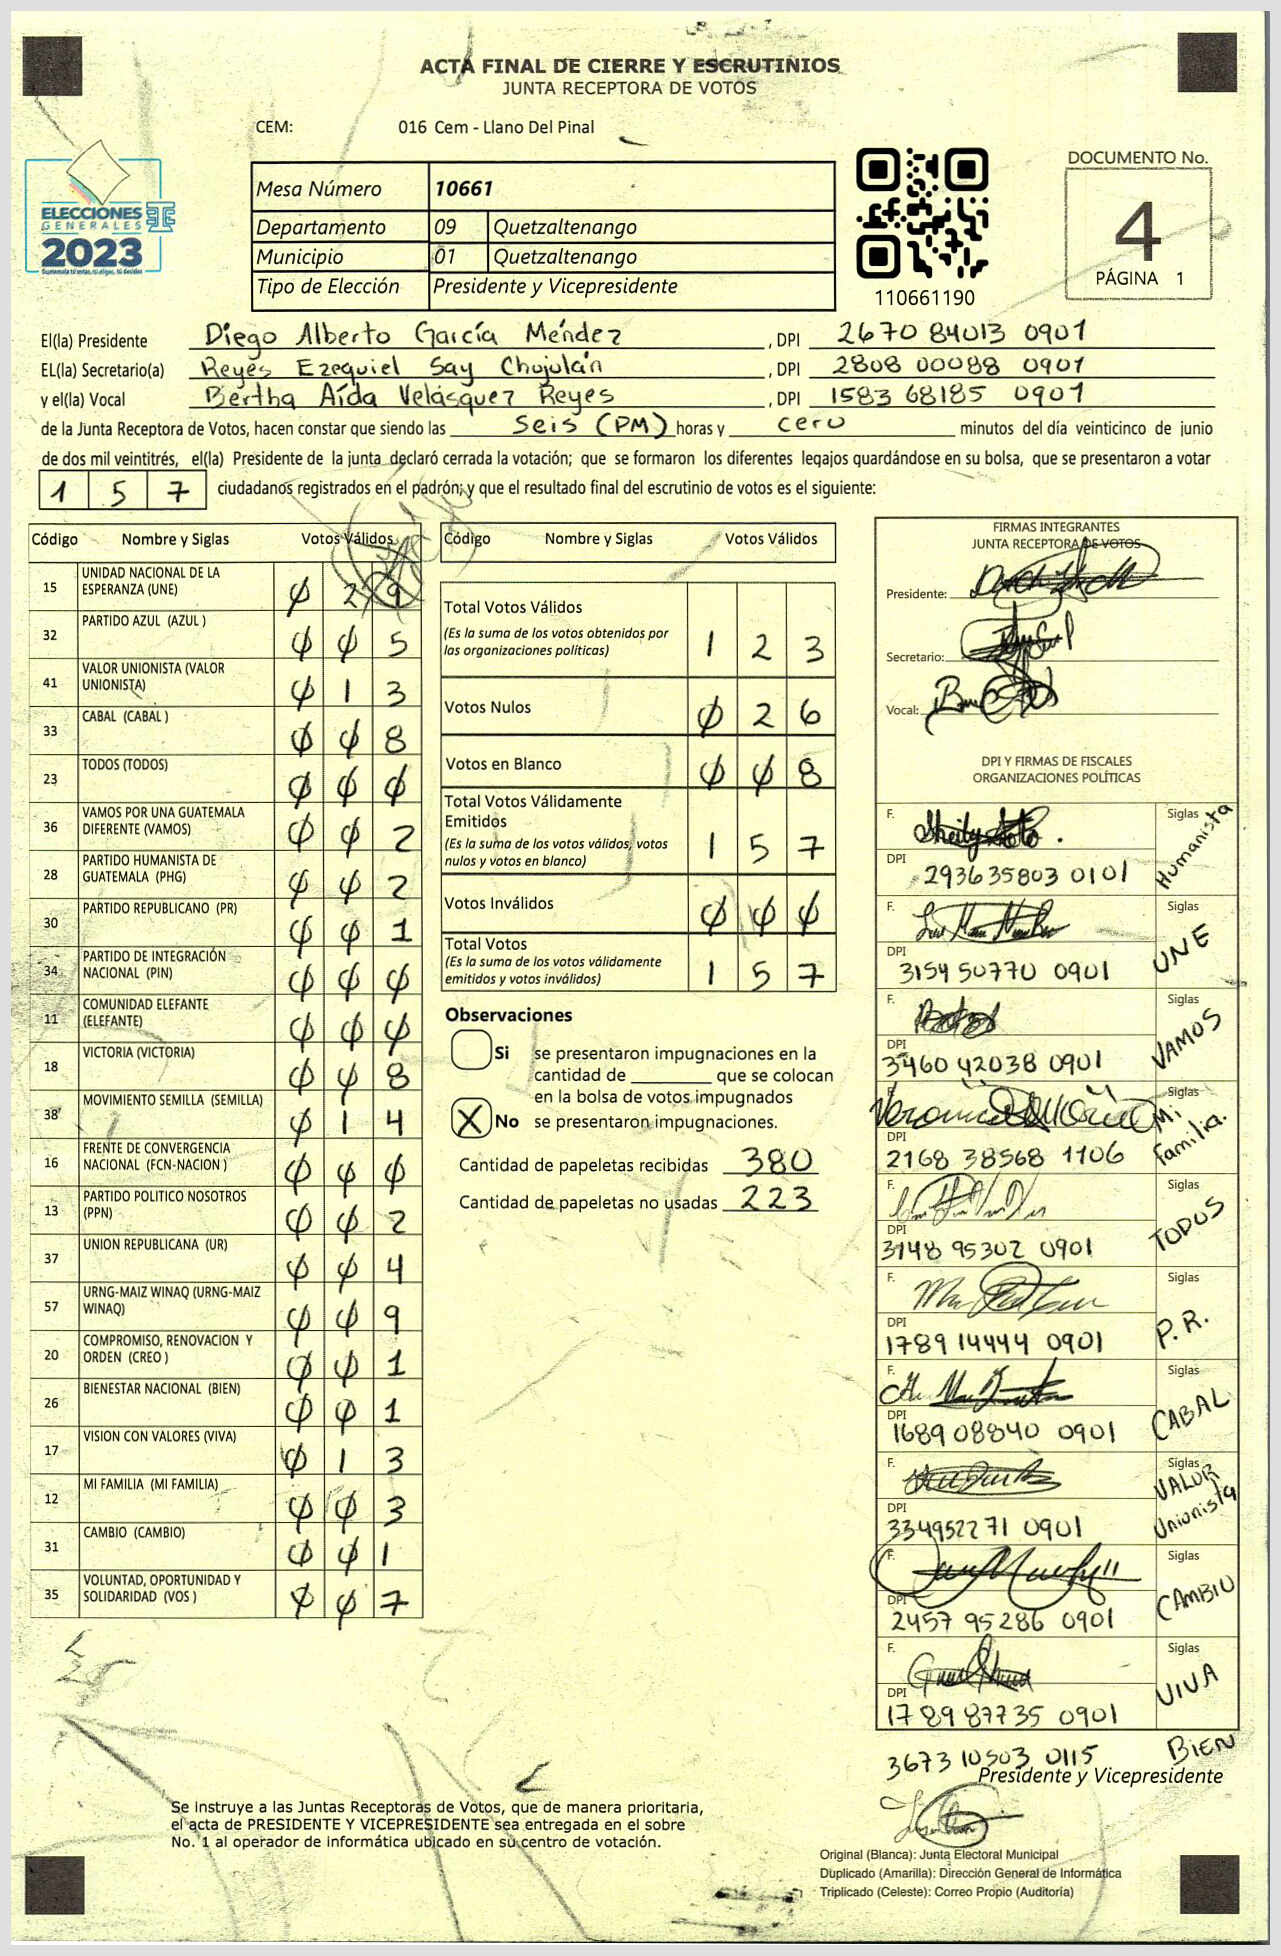 ACTA FINAL DE CIERRE Y ESCRUTINIOS
JUNTA RECEPTORA DE VOTOS
CEM: 016 Cem - Llano Del Pinal
ELECCIONES
GENERALES
2023
Guatemala tú estas, tú eliges, tú decides
Mesa Número 10661
Departamento 09 Quetzaltenango
Municipio 01 Quetzaltenango
Tipo de Elección Presidente y Vicepresidente
110661190
DOCUMENTO No.
4
PÁGINA 1
El(la) Presidente Diego Alberto García Méndez , DPI 2670 84013 0901
EL(la) Secretario(a) Reyes Ezequiel Say Chojolán , DPI 2808 00088 0901
y el(la) Vocal Bertha Aída Velásquez Reyes , DPI 1583 68185 0901
de la Junta Receptora de Votos, hacen constar que siendo las Seis (PM) horas y cero minutos del día veinticinco de junio
de dos mil veintitrés, el(la) Presidente de la junta declaró cerrada la votación; que se formaron los diferentes legajos guardándose en su bolsa, que se presentaron a votar
1 5 7 ciudadanos registrados en el padrón; y que el resultado final del escrutinio de votos es el siguiente:
Código Nombre y Siglas Votos Válidos
15 UNIDAD NACIONAL DE LA ESPERANZA (UNE) 0 2 9
32 PARTIDO AZUL (AZUL ) 0 0 5
41 VALOR UNIONISTA (VALOR UNIONISTA) 0 1 3
33 CABAL (CABAL ) 0 0 8
23 TODOS (TODOS) 0 0 0
36 VAMOS POR UNA GUATEMALA DIFERENTE (VAMOS) 0 0 2
28 PARTIDO HUMANISTA DE GUATEMALA (PHG) 0 0 2
30 PARTIDO REPUBLICANO (PR) 0 0 1
34 PARTIDO DE INTEGRACIÓN NACIONAL (PIN) 0 0 0
11 COMUNIDAD ELEFANTE (ELEFANTE) 0 0 0
18 VICTORIA (VICTORIA) 0 0 8
38 MOVIMIENTO SEMILLA (SEMILLA) 0 1 4
16 FRENTE DE CONVERGENCIA NACIONAL (FCN-NACION ) 0 0 0
13 PARTIDO POLITICO NOSOTROS (PPN) 0 0 2
37 UNION REPUBLICANA (UR) 0 0 4
57 URNG-MAIZ WINAQ (URNG-MAIZ WINAQ) 0 0 9
20 COMPROMISO, RENOVACION Y ORDEN (CREO ) 0 0 1
26 BIENESTAR NACIONAL (BIEN) 0 0 1
17 VISION CON VALORES (VIVA) 0 1 3
12 MI FAMILIA (MI FAMILIA) 0 0 3
31 CAMBIO (CAMBIO) 0 0 1
35 VOLUNTAD, OPORTUNIDAD Y SOLIDARIDAD (VOS ) 0 0 7
Código Nombre y Siglas Votos Válidos
Total Votos Válidos 1 2 3
(Es la suma de los votos obtenidos por
las organizaciones políticas)
Votos Nulos 0 2 6
Votos en Blanco 0 0 8
Total Votos Válidamente
Emitidos 1 5 7
(Es la suma de los votos válidos, votos
nulos y votos en blanco)
Votos Inválidos 0 0 0
Total Votos 1 5 7
(Es la suma de los votos válidamente
emitidos y votos inválidos)
Observaciones
Si se presentaron impugnaciones en la
cantidad de ________ que se colocan
en la bolsa de votos impugnados
X No se presentaron impugnaciones.
Cantidad de papeletas recibidas 380
Cantidad de papeletas no usadas 223
FIRMAS INTEGRANTES
JUNTA RECEPTORA DE VOTOS
Presidente:
Secretario:
Vocal:
DPI Y FIRMAS DE FISCALES
ORGANIZACIONES POLÍTICAS
F. Siglas Humanista
DPI 293635803 0101
F. Siglas UNE
DPI 3154 50770 0901
F. Siglas VAMOS
DPI 3460 42038 0901
F. Siglas Mi Familia.
DPI 2168 38568 1106
F. Siglas TODOS
DPI 3148 95302 0901
F. Siglas P.R.
DPI 1789 14444 0901
F. Siglas CABAL
DPI 1689 08840 0901
F. Siglas VALOR Unionista
DPI 334952271 0901
F. Siglas CAMBIO
DPI 2457 95286 0901
F. Siglas VIVA
DPI 1789 87735 0901
3673 10503 0115 BIEN
Presidente y Vicepresidente
Se instruye a las Juntas Receptoras de Votos, que de manera prioritaria,
el acta de PRESIDENTE Y VICEPRESIDENTE sea entregada en el sobre
No. 1 al operador de informática ubicado en su centro de votación.
Original (Blanca): Junta Electoral Municipal
Duplicado (Amarilla): Dirección General de Informática
Triplicado (Celeste): Correo Propio (Auditoría)